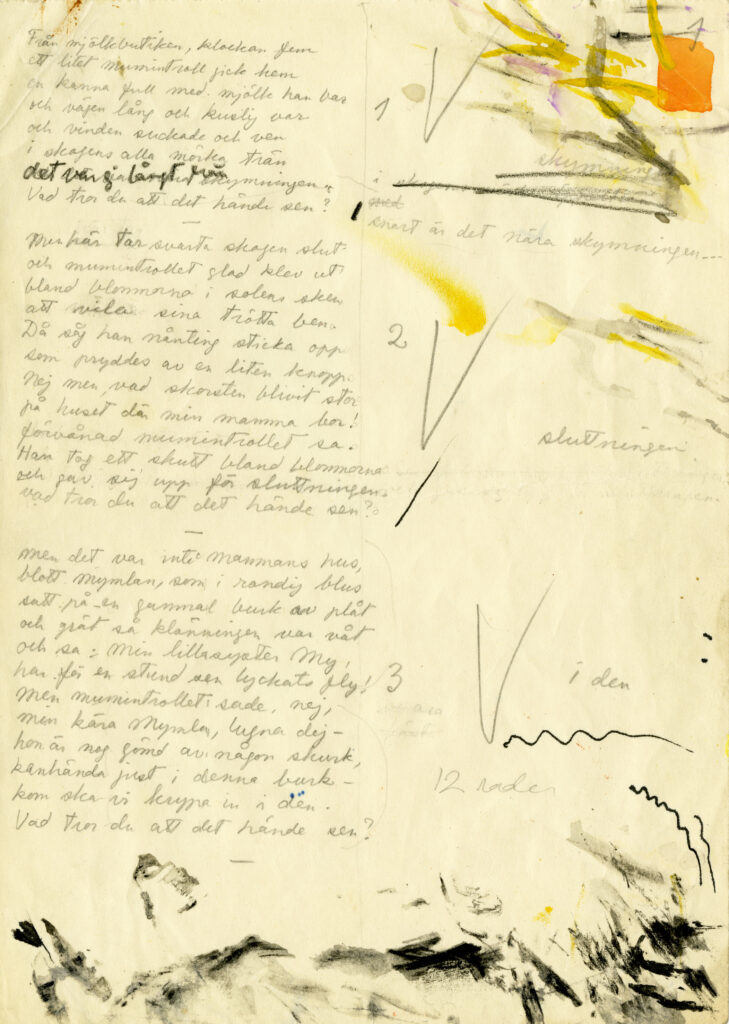 Från mjölkbutiken, klockan fem
ett litet mumintroll gick hem
en kanna full med mjölk han bar
och vägen lång och kuslig var
och vinden suckade och ven
i skogens alla mörka trän
det var skymningen.
Vad tror du att det hände sen?
Men här tar svarta skogen slut
och mumintrollet glad klev ut
bland blommorna i solens sken
att vila sina trötta ben.
Då såg han nånting sticka opp
som pryddes av en liten knopp.
Nej men, vad skorsten blivit stor
på huset där min mamma bor!
förvånad mumintrollet sa.
Han tog ett skutt bland blommorna
och gav sig upp för sluttningen.
vad tror du att det hände sen?
Men det var inte mammans hus,
blott Mymlan, som i randig blus
satt på en gammal burk av plåt
och grät så klänningen var våt
och sa: Min lillasyster My,
har för en stund sen lyckats fly!
Men mumintrollet sade, nej,
men kära Mymla, lugna dej –
hon är nog gömd av någon skurk,
kanhända just i denna burk –
kom ska vi krypa in i den.
Vad tror du att det hände sen?
1
1
skymningen
i
med
snart är det nära skymningen---
2
sluttningen.
3
i den
12 rader